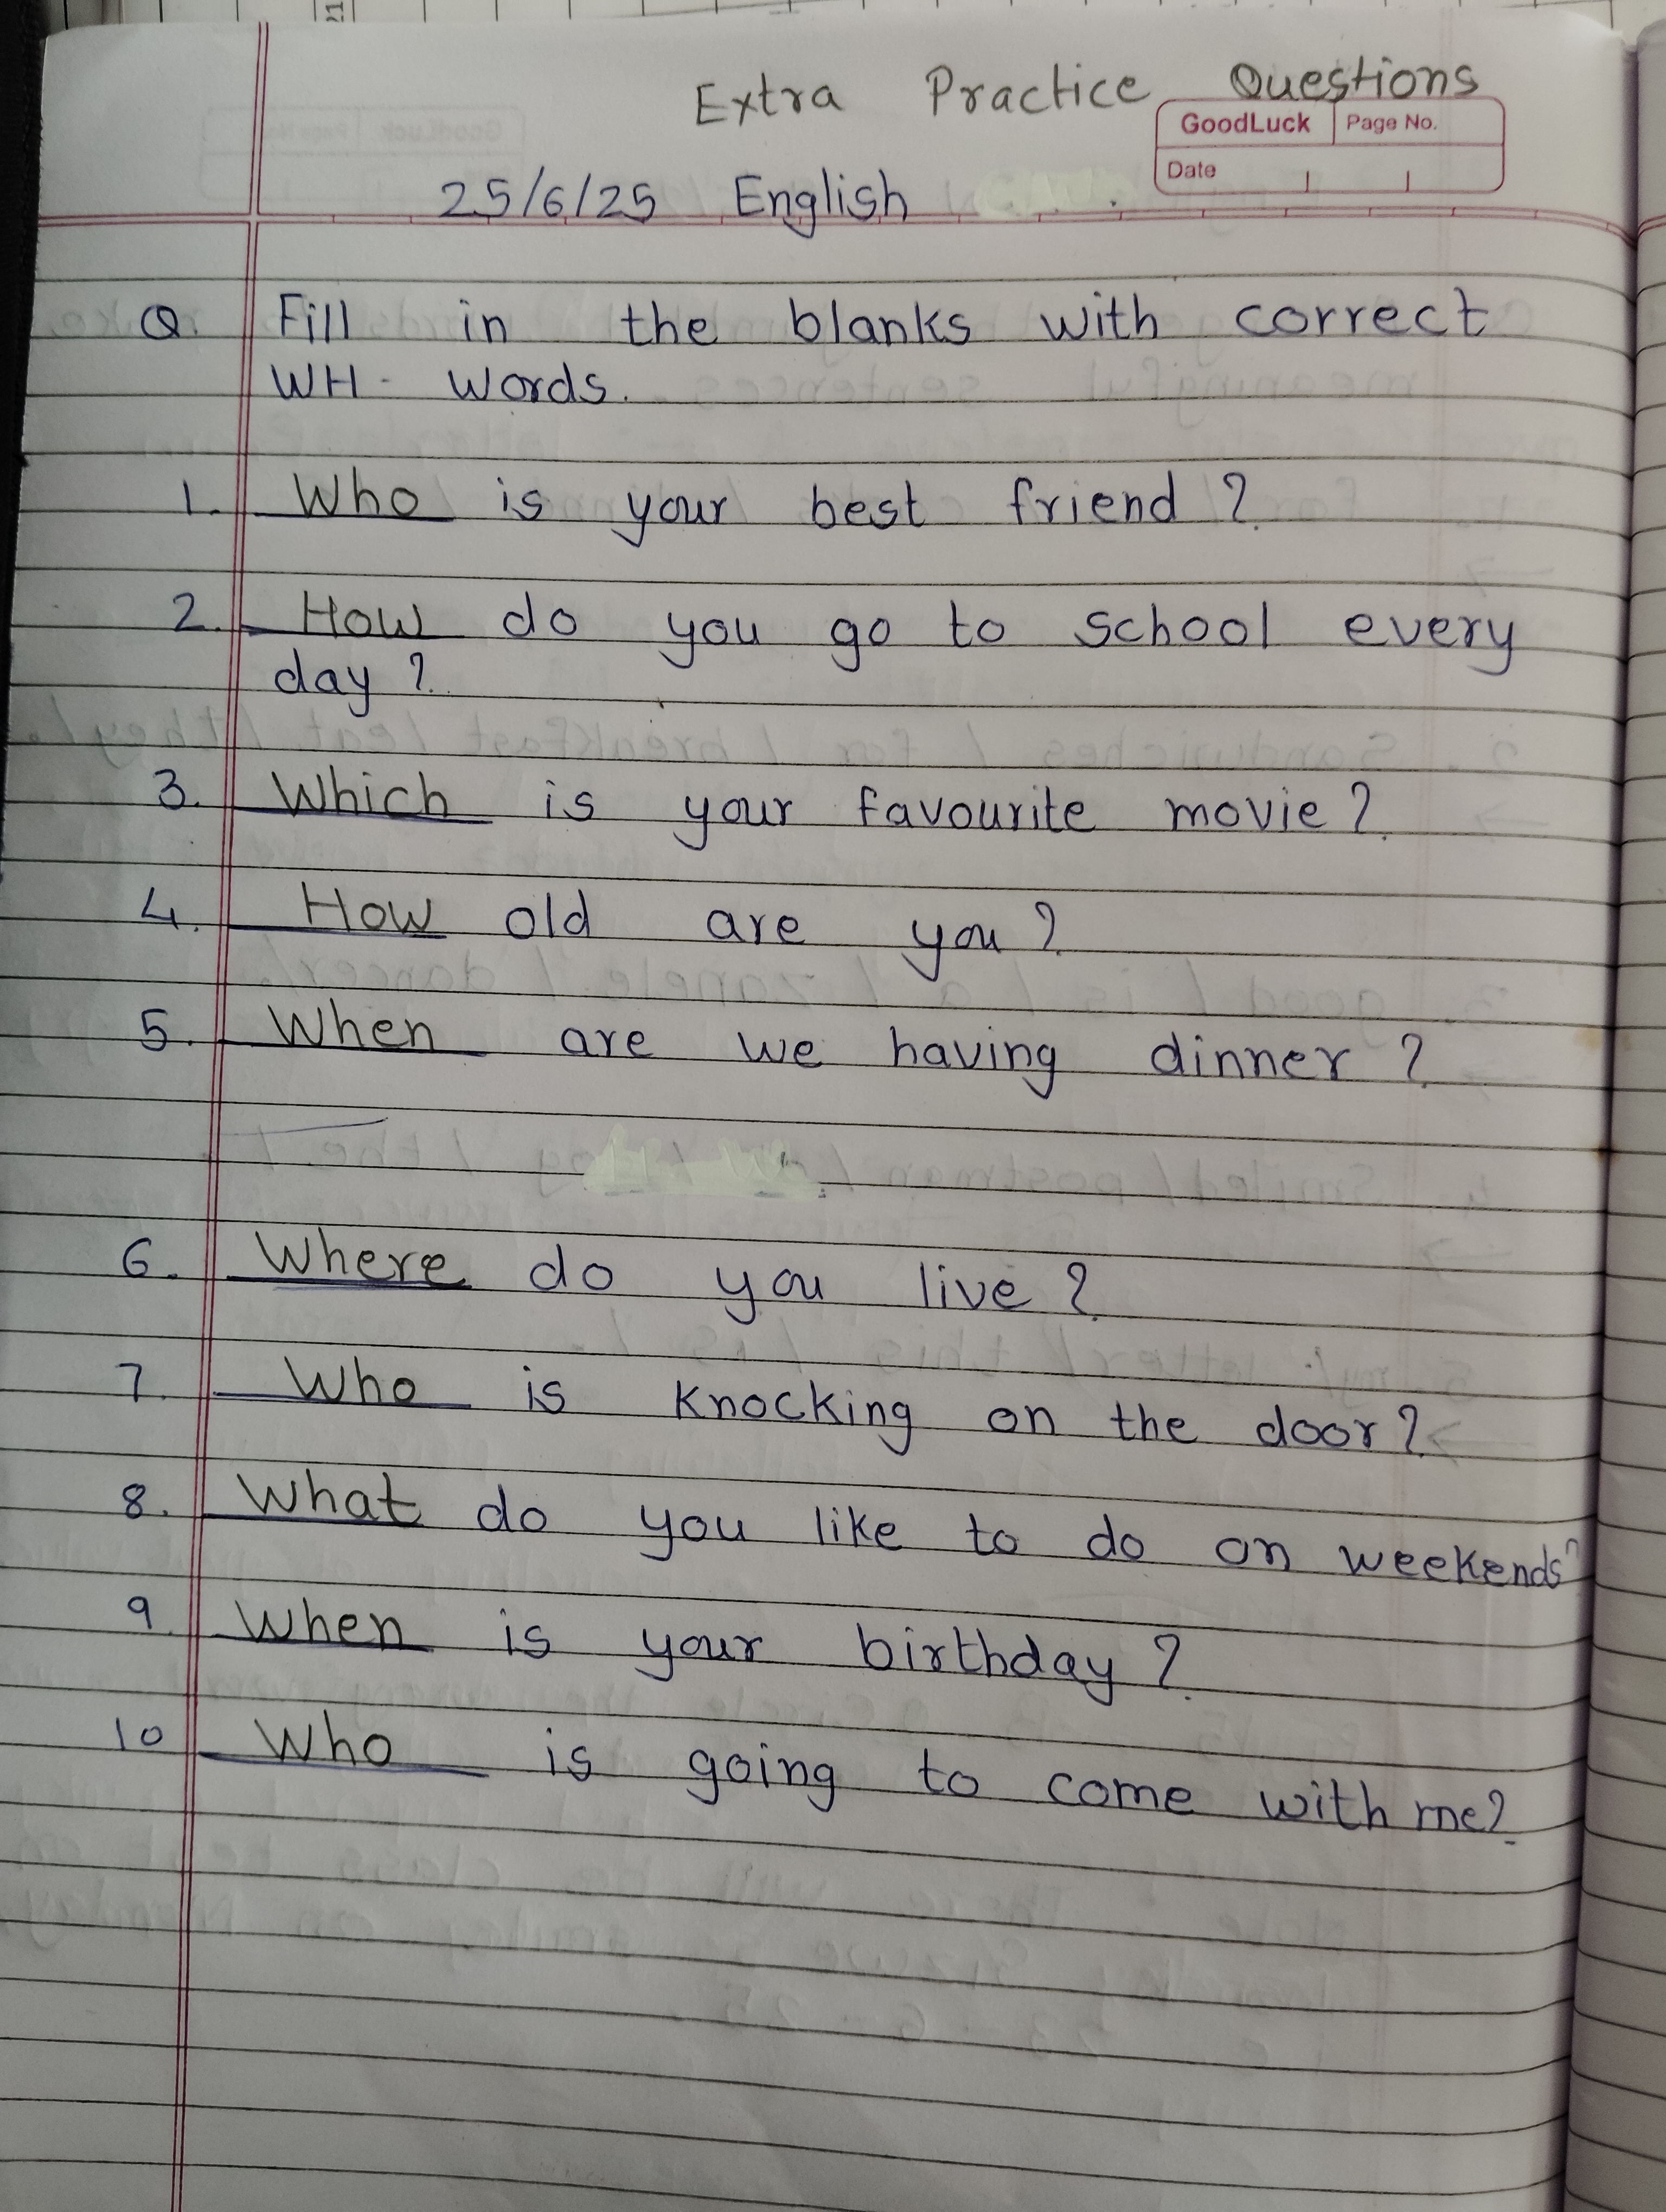 Extra Practice Questions
GoodLuck Page No.
Date
25/6/25 English
Q. Fill in the blanks with correct
WH- words.
1. Who is your best friend?
2. How do you go to school every
day?
3. Which is your favourite movie?
4. How old are you?
5. When are we having dinner?
6. Where do you live?
7. Who is knocking on the door?
8. What do you like to do on weekends?
9. When is your birthday?
10 Who is going to come with me?